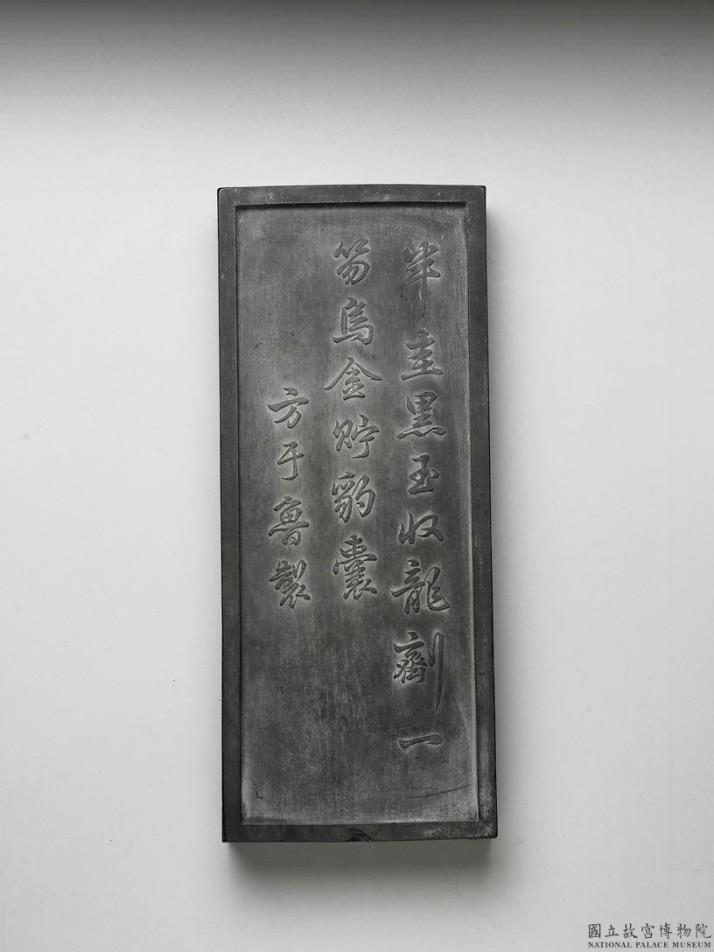 半圭黑玉收龍劑一
笏烏金貯豹囊
方于魯製
國立故宮博物院
NATIONAL PALACE MUSEUM